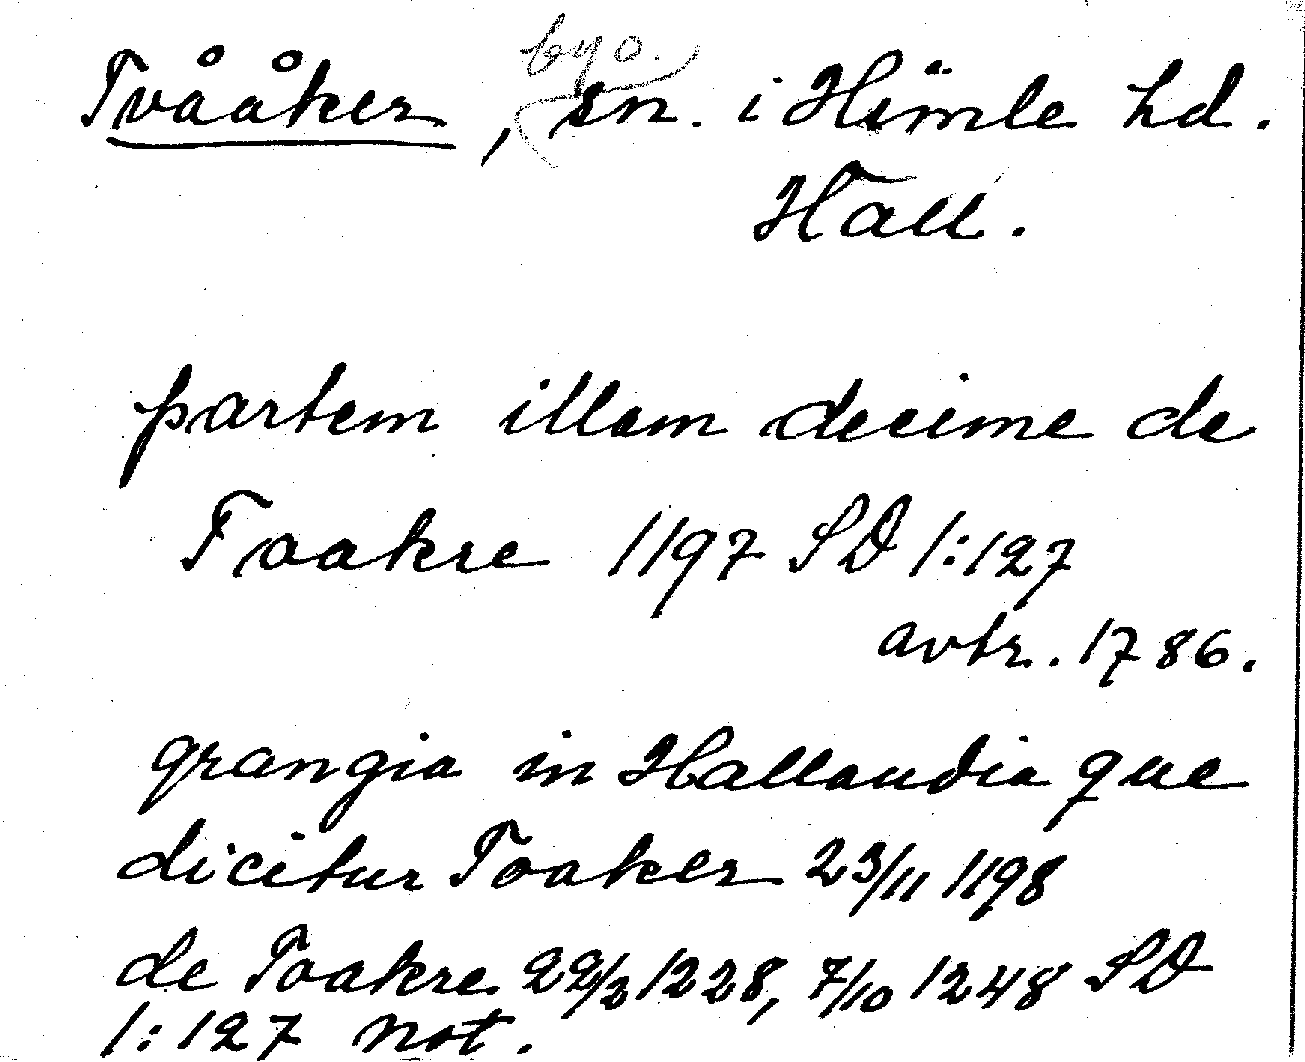 Tvååker, by o. sn. i Himle hd.
Hall.
partem illam decime de
Toakre 1197 SD 1:127
avtr. 1786.
grangia in Hallandia que
dicitur Toaker 23/11 1198
de Toakre 22/2 1228, 7/10 1248 SD
1:127 not.